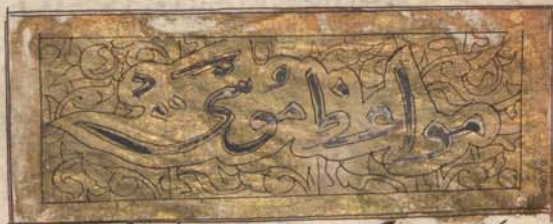 مواعظ موسى